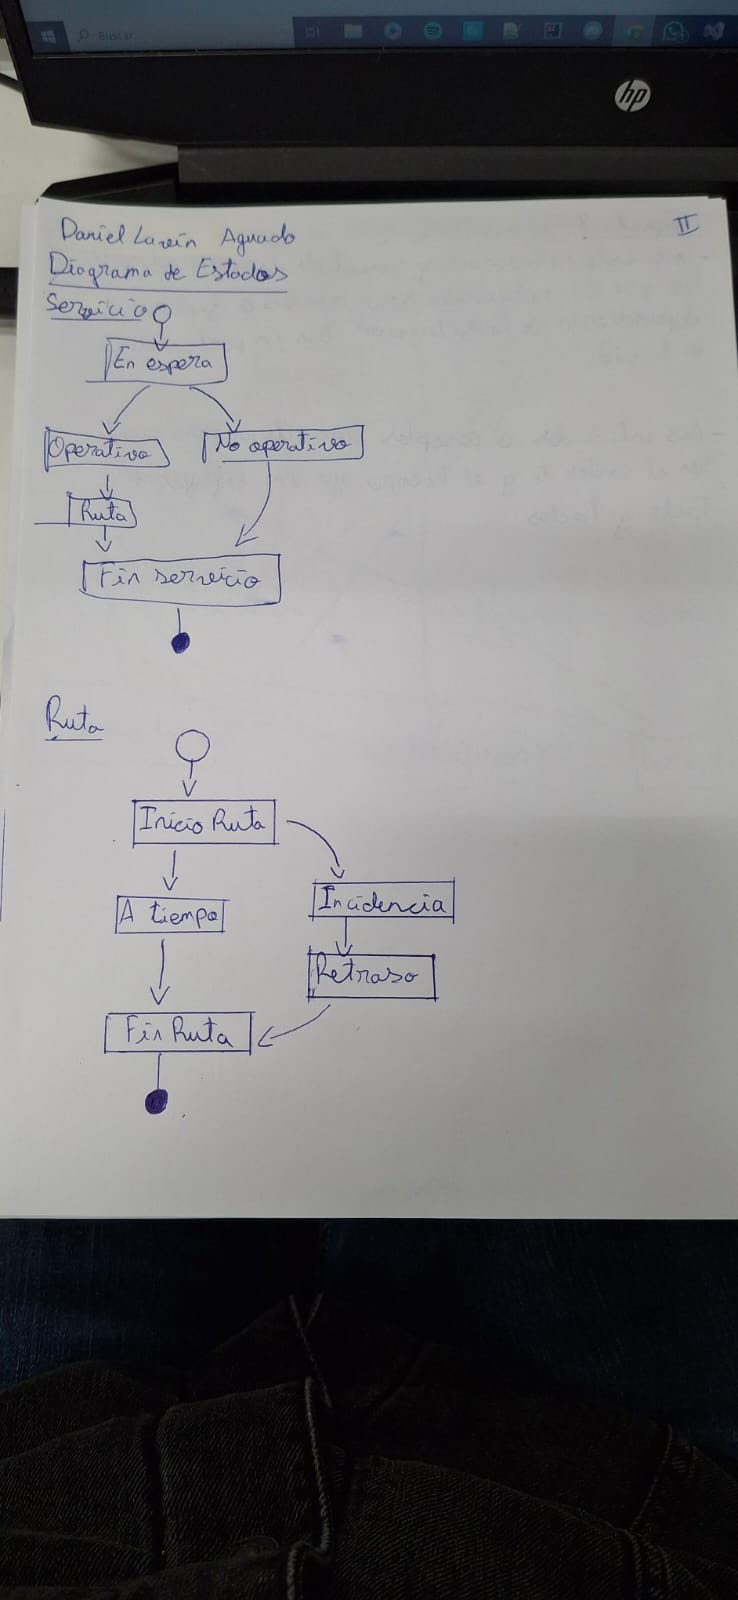 Buscar
hp
II
Daniel Lavín Aguado
Diagrama de Estados
Servicio
En espera
Operativo
No operativo
Ruta
Fin servicio
Ruta
Inicio Ruta
A tiempo
Incidencia
Retraso
Fin Ruta